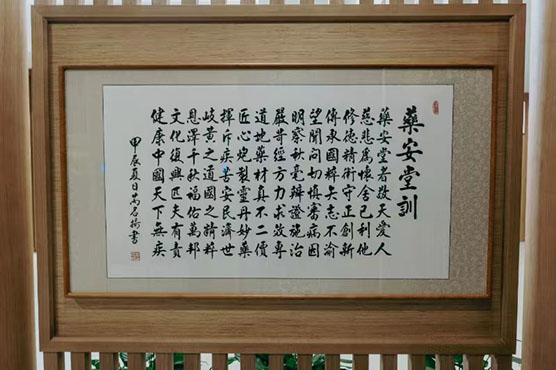 藥安堂訓
藥安堂者敬天愛人
慈悲為懷舍己利他
修德精術守正創新
傳承國粹矢志不渝
望聞問切慎審病因
明察秋毫辯證施治
嚴苛經方力求效專
道地藥材真不二價
匠心炮製靈丹妙藥
揮斥疾苦安民濟世
岐黃之道國之精粹
恩澤千秋福佑萬邦
文化復興匹夫有責
健康中國天下無疾
甲辰夏日萬名
書